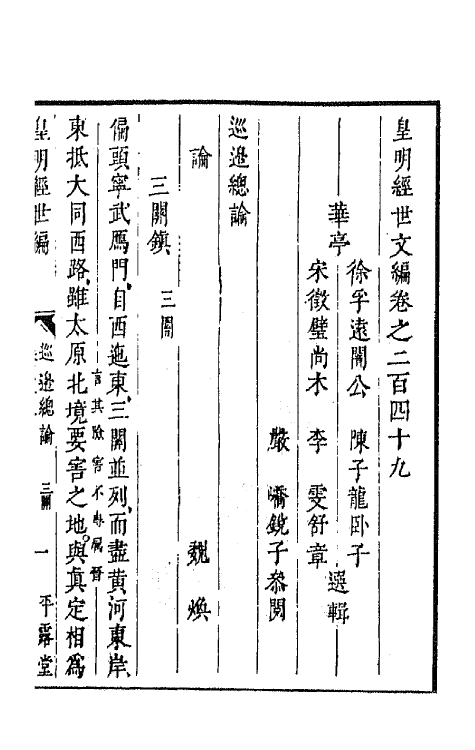 皇明經世文編卷之二百四十九
華亭
徐孚遠闇公　陳子龍卧子
宋徵璧尚木　李　雯舒章
選輯
嚴　嶠銳子參閱
巡邊總論
論　魏　煥
三關鎮　三關
偏頭寧武鴈門自西迤東三關並列而盡黃河東岸
言其險害不專屬晉
東抵大同西路雖太原北境要害之地與真定相為
皇明經世編　巡邊總論　三關　一　平露堂